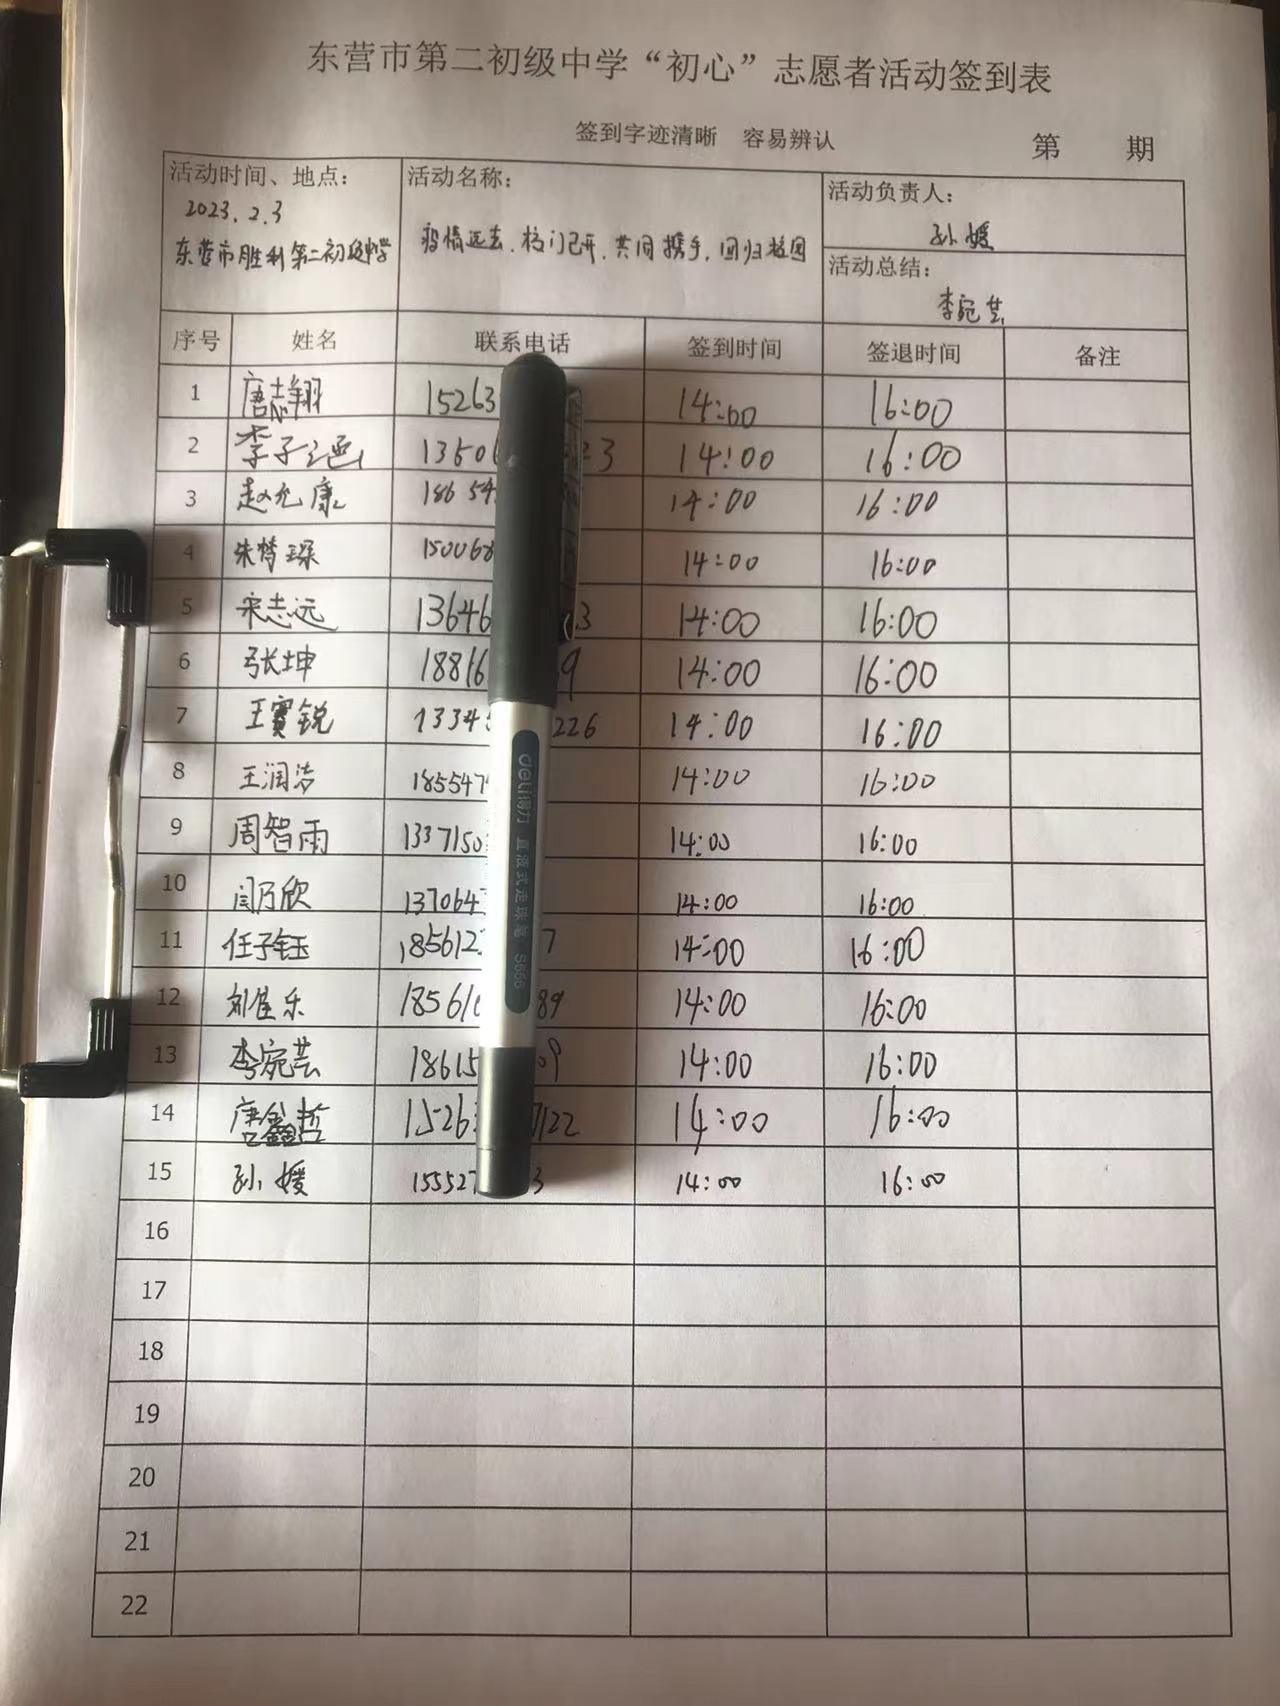 东营市第二初级中学“初心”志愿者活动签到表
签到字迹清晰 容易辨认
第 期
活动时间、地点：
2023.2.3
东营市胜利第二初级中学
活动名称：
疫情远去，校门已开，共同携手，回归校园
活动负责人：
孙媛
活动总结：
李宛芸
序号 姓名 联系电话 签到时间 签退时间 备注
1 唐志翔 15263 14:00 16:00
2 李子涵 13506 23 14:00 16:00
3 赵允康 18654 14:00 16:00
4 朱梦琛 150068 14:00 16:00
5 宋志远 13646 3 14:00 16:00
6 张坤 18816 9 14:00 16:00
7 王寶锐 1334 226 14:00 16:00
8 王润 185547 14:00 16:00
9 周智雨 1337150 14:00 16:00
10 闫乃欣 137064 14:00 16:00
11 任子钰 185612 7 14:00 16:00
12 刘佳乐 18561 89 14:00 16:00
13 李宛芸 18615 09 14:00 16:00
14 唐鑫哲 1526 7122 14:00 16:00
15 孙媛 155527 3 14:00 16:00
16
17
18
19
20
21
22
deli得力 直液式走珠笔 S666